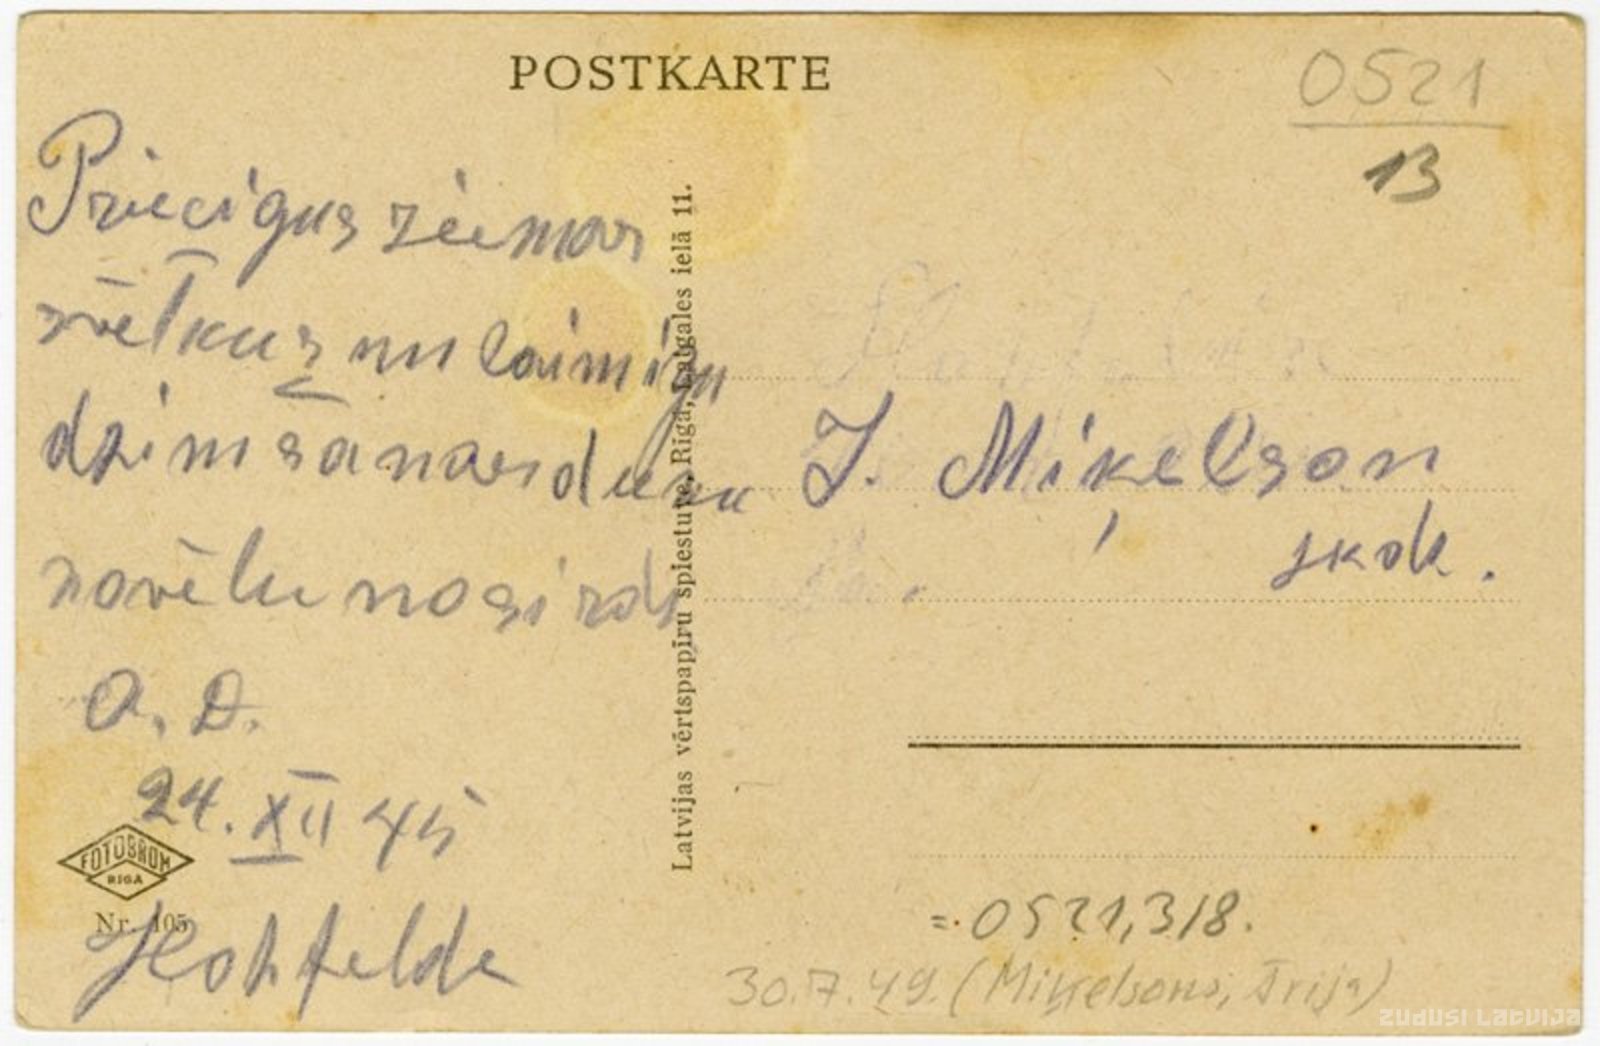 POSTKARTE
0521
13
Priecīgus ziemas
svētkus un laimīgu
dzimšanas dienu
novēlu no sirds
A. D.
24. XII 45
Hohfelde
FOTOBROM
RIGA
Nr. 105
Latvijas vērtspapīru spiestuve, Rīgā, Latgales ielā 11.
J. Miķelson
skol.
=.0521,318.
30.7.49. (Miķelsons, Trija)
ZUDUSI LATVIJA